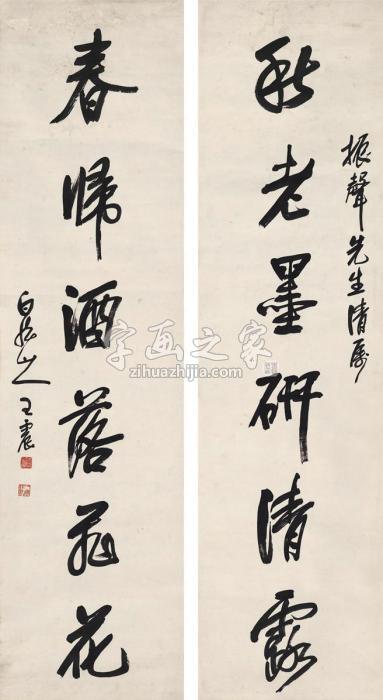 振聲先生清屬
秋老墨研清露
春歸酒落飛花
白龍山人王震
字画之家
zihuazhijia.com